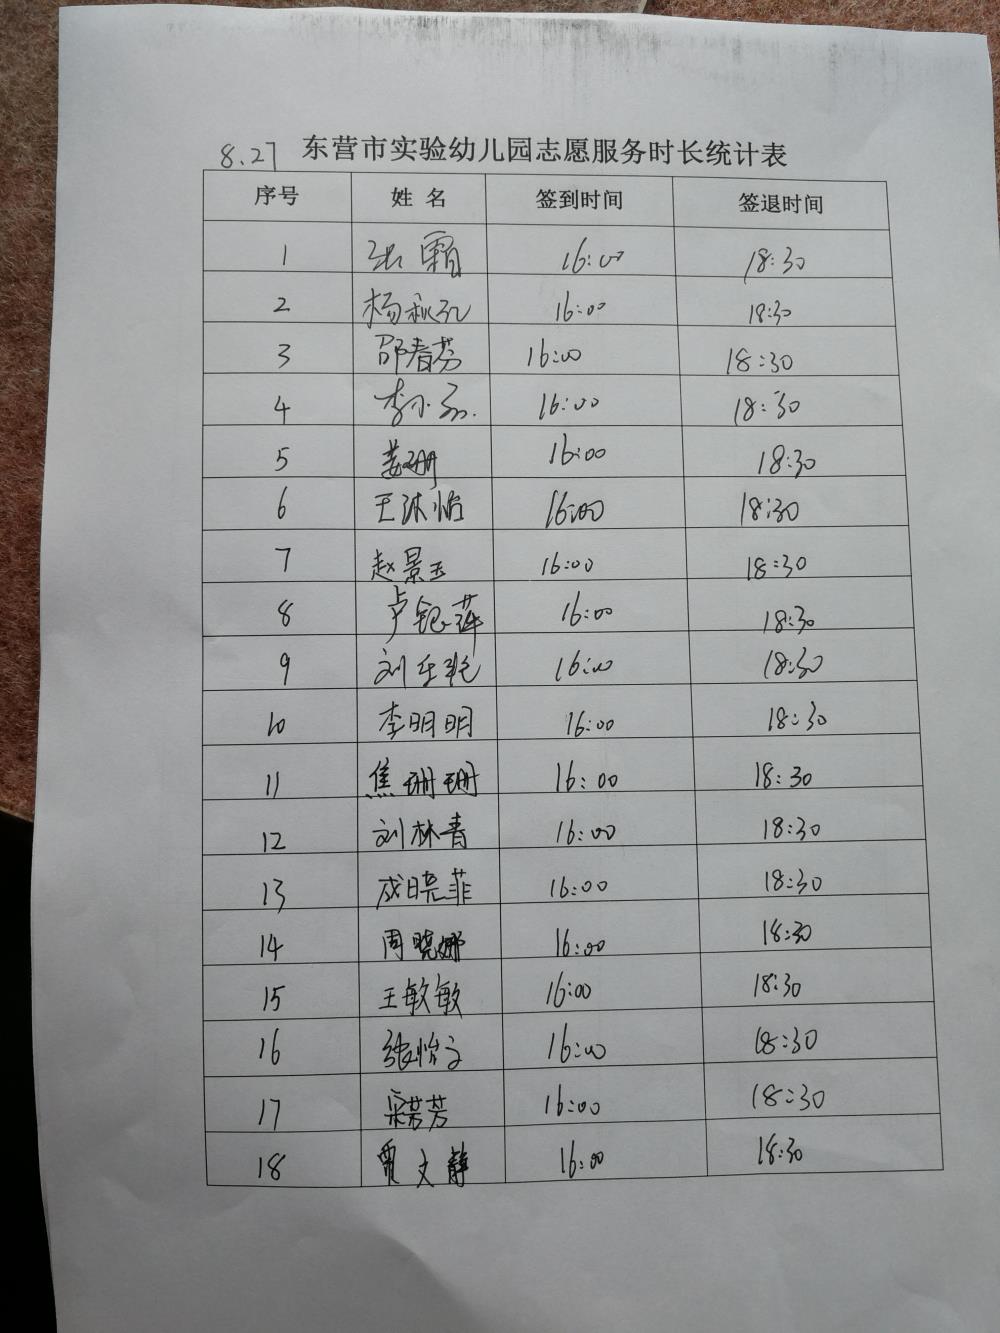 8.27 东营市实验幼儿园志愿服务时长统计表
序号 姓名 签到时间 签退时间
1 张霜 16:00 18:30
2 杨秋 16:00 18:30
3 邵春芬 16:00 18:30
4 李小 16:00 18:30
5 姜珊 16:00 18:30
6 王沐怡 16:00 18:30
7 赵景玉 16:00 18:30
8 卢银萍 16:00 18:30
9 刘 艳 16:00 18:30
10 李明明 16:00 18:30
11 焦珊珊 16:00 18:30
12 刘林青 16:00 18:30
13 成晓菲 16:00 18:30
14 周晓娜 16:00 18:30
15 王敏敏 16:00 18:30
16 张怡文 16:00 18:30
17 芳芳 16:00 18:30
18 贾文静 16:00 18:30